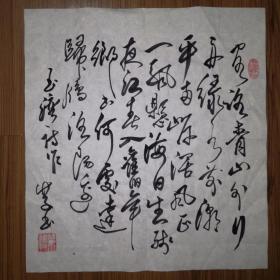 客路青山外行
舟綠水前潮
平兩岸闊風正
一帆懸海日生殘
夜江春入舊年
鄉書何處達
歸雁洛陽邊
王灣詩作 書